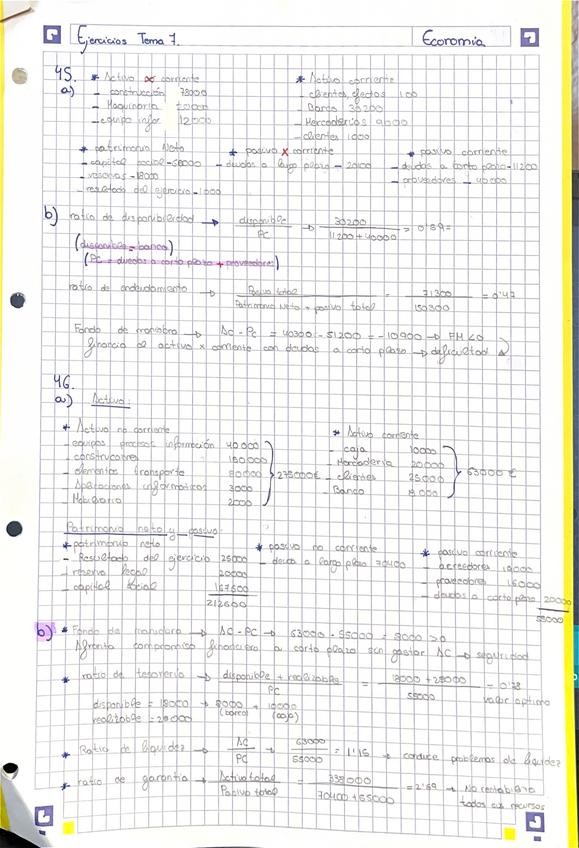 Ejercicios Tema 7.
Economía
45.
a)
* Activo x corriente
- construcción 78000
- Maquinaria 20000
- equipo infor. 12000
* Activo corriente
- clientes, efectos 100
- Banco 30200
- Mercaderías 9000
- clientes 1000
* patrimonio Neto
- capital social - 58000
- reservas - 18000
- resultado del ejercicio - 1000
* pasivo x corriente
- deudas a largo plazo - 20100
* pasivo corriente
- deudas a corto plazo - 11200
- proveedores - 40000
b) ratio de disponibilidad → disponible / PC → 30200 / 11200 + 40000 = 0'59
(disponible = banco)
(PC = duedas a corto plazo + proveedores)
ratio de endeudamiento → Pasivo total / Patrimonio Neto + pasivo total = 71300 / 150300 = 0'47
Fondo de maniobra → AC - PC = 40300 - 51200 = -10900 → FM < 0
financia el activo x corriente con deudas a corto plazo → dificultad
46.
a) Activo:
* Activo no corriente
- equipos procesos información 40000
- construcciones 150000
- elementos transporte 80000
- Aplicaciones informaticas 3000
- Mobiliario 2000
275000€
* Activo corriente
- caja 10000
- Mercadería 20000
- clientes 25000
- Banco 8000
63000 €
Patrimonio neto y pasivo:
* patrimonio neto
- Resultado del ejercicio 25000
- reserva legal 20000
- capital social 167600
212600
* pasivo no corriente
- deuda a largo plazo 70400
* pasivo corriente
- acreedores 19000
- proveedores 16000
- deudas a corto plazo 20000
55000
b) * Fondo de maniobra → AC - PC → 63000 - 55000 = 8000 > 0
Afronta compromiso financiero a corto plazo sin gastar AC → seguridad
* ratio de tesorería → disponible + realizable / PC = 18000 + 25000 / 55000 = 0'78
valor optimo
disponible = 18000 → 8000 (banco) + 10000 (caja)
realizable = 25000
* Ratio de liquidez → AC / PC → 63000 / 55000 = 1'15 → conduce problemas de liquidez
* ratio de garantía → Activo total / Pasivo total = 338000 / 70400 + 55000 = 2'69 → No rentabiliza
todos sus recursos